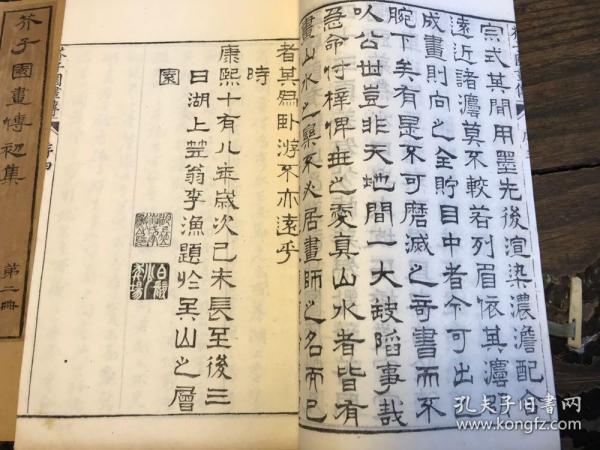 宗式其間用墨先後渲染濃澹配合
遠近諸灋莫不較若列眉依其灋以
成畫則向之全貯目中者今可出
腕下矣有是不可磨滅之奇書而不
以公世豈非天地間一大缺陷事哉
急命付梓俾世之愛真山水者皆有
畫山水之樂不必居畫師之名而已
者其爲臥游不亦遠乎
時
康熙十有八年歲次己未長至後三
日湖上笠翁李漁題於吳山之層
園
芥子園畫傳
序四
芥子園畫傳初集
第二冊
孔夫子旧书网
www.kongfz.com